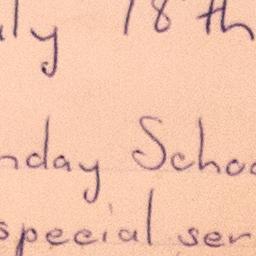 ly 18th
nday Schoo
special ser